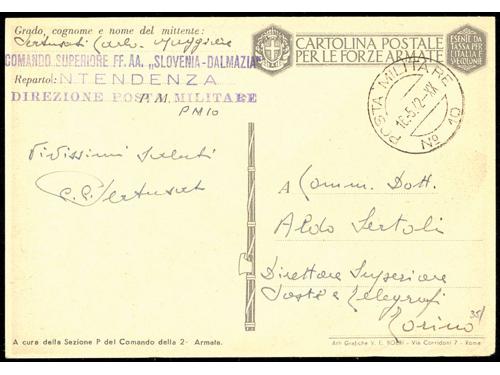 Grado, cognome e nome del mittente:
Carlo Maggiore
COMANDO SUPERIORE FF. AA. „SLOVENIA-DALMAZIA"
Reparto: INTENDENZA
DIREZIONE POST. MILITARE
P.M.
PM 10
CARTOLINA POSTALE
PER LE FORZE ARMATE
ESENTE DA
TASSA PER
L'ITALIA E
SUE COLONIE
POSTA MILITARE
16.5.42-XX
Nº 10
Vivissimi saluti
A Comm. Dott.
Aldo Sertoli
Direttore Superiore
Poste e Telegrafi
Torino
35/
A cura della Sezione P del Comando della 2ª Armata.
Arti Grafiche V. E. BOERI - Via Corridoni 7 - Roma